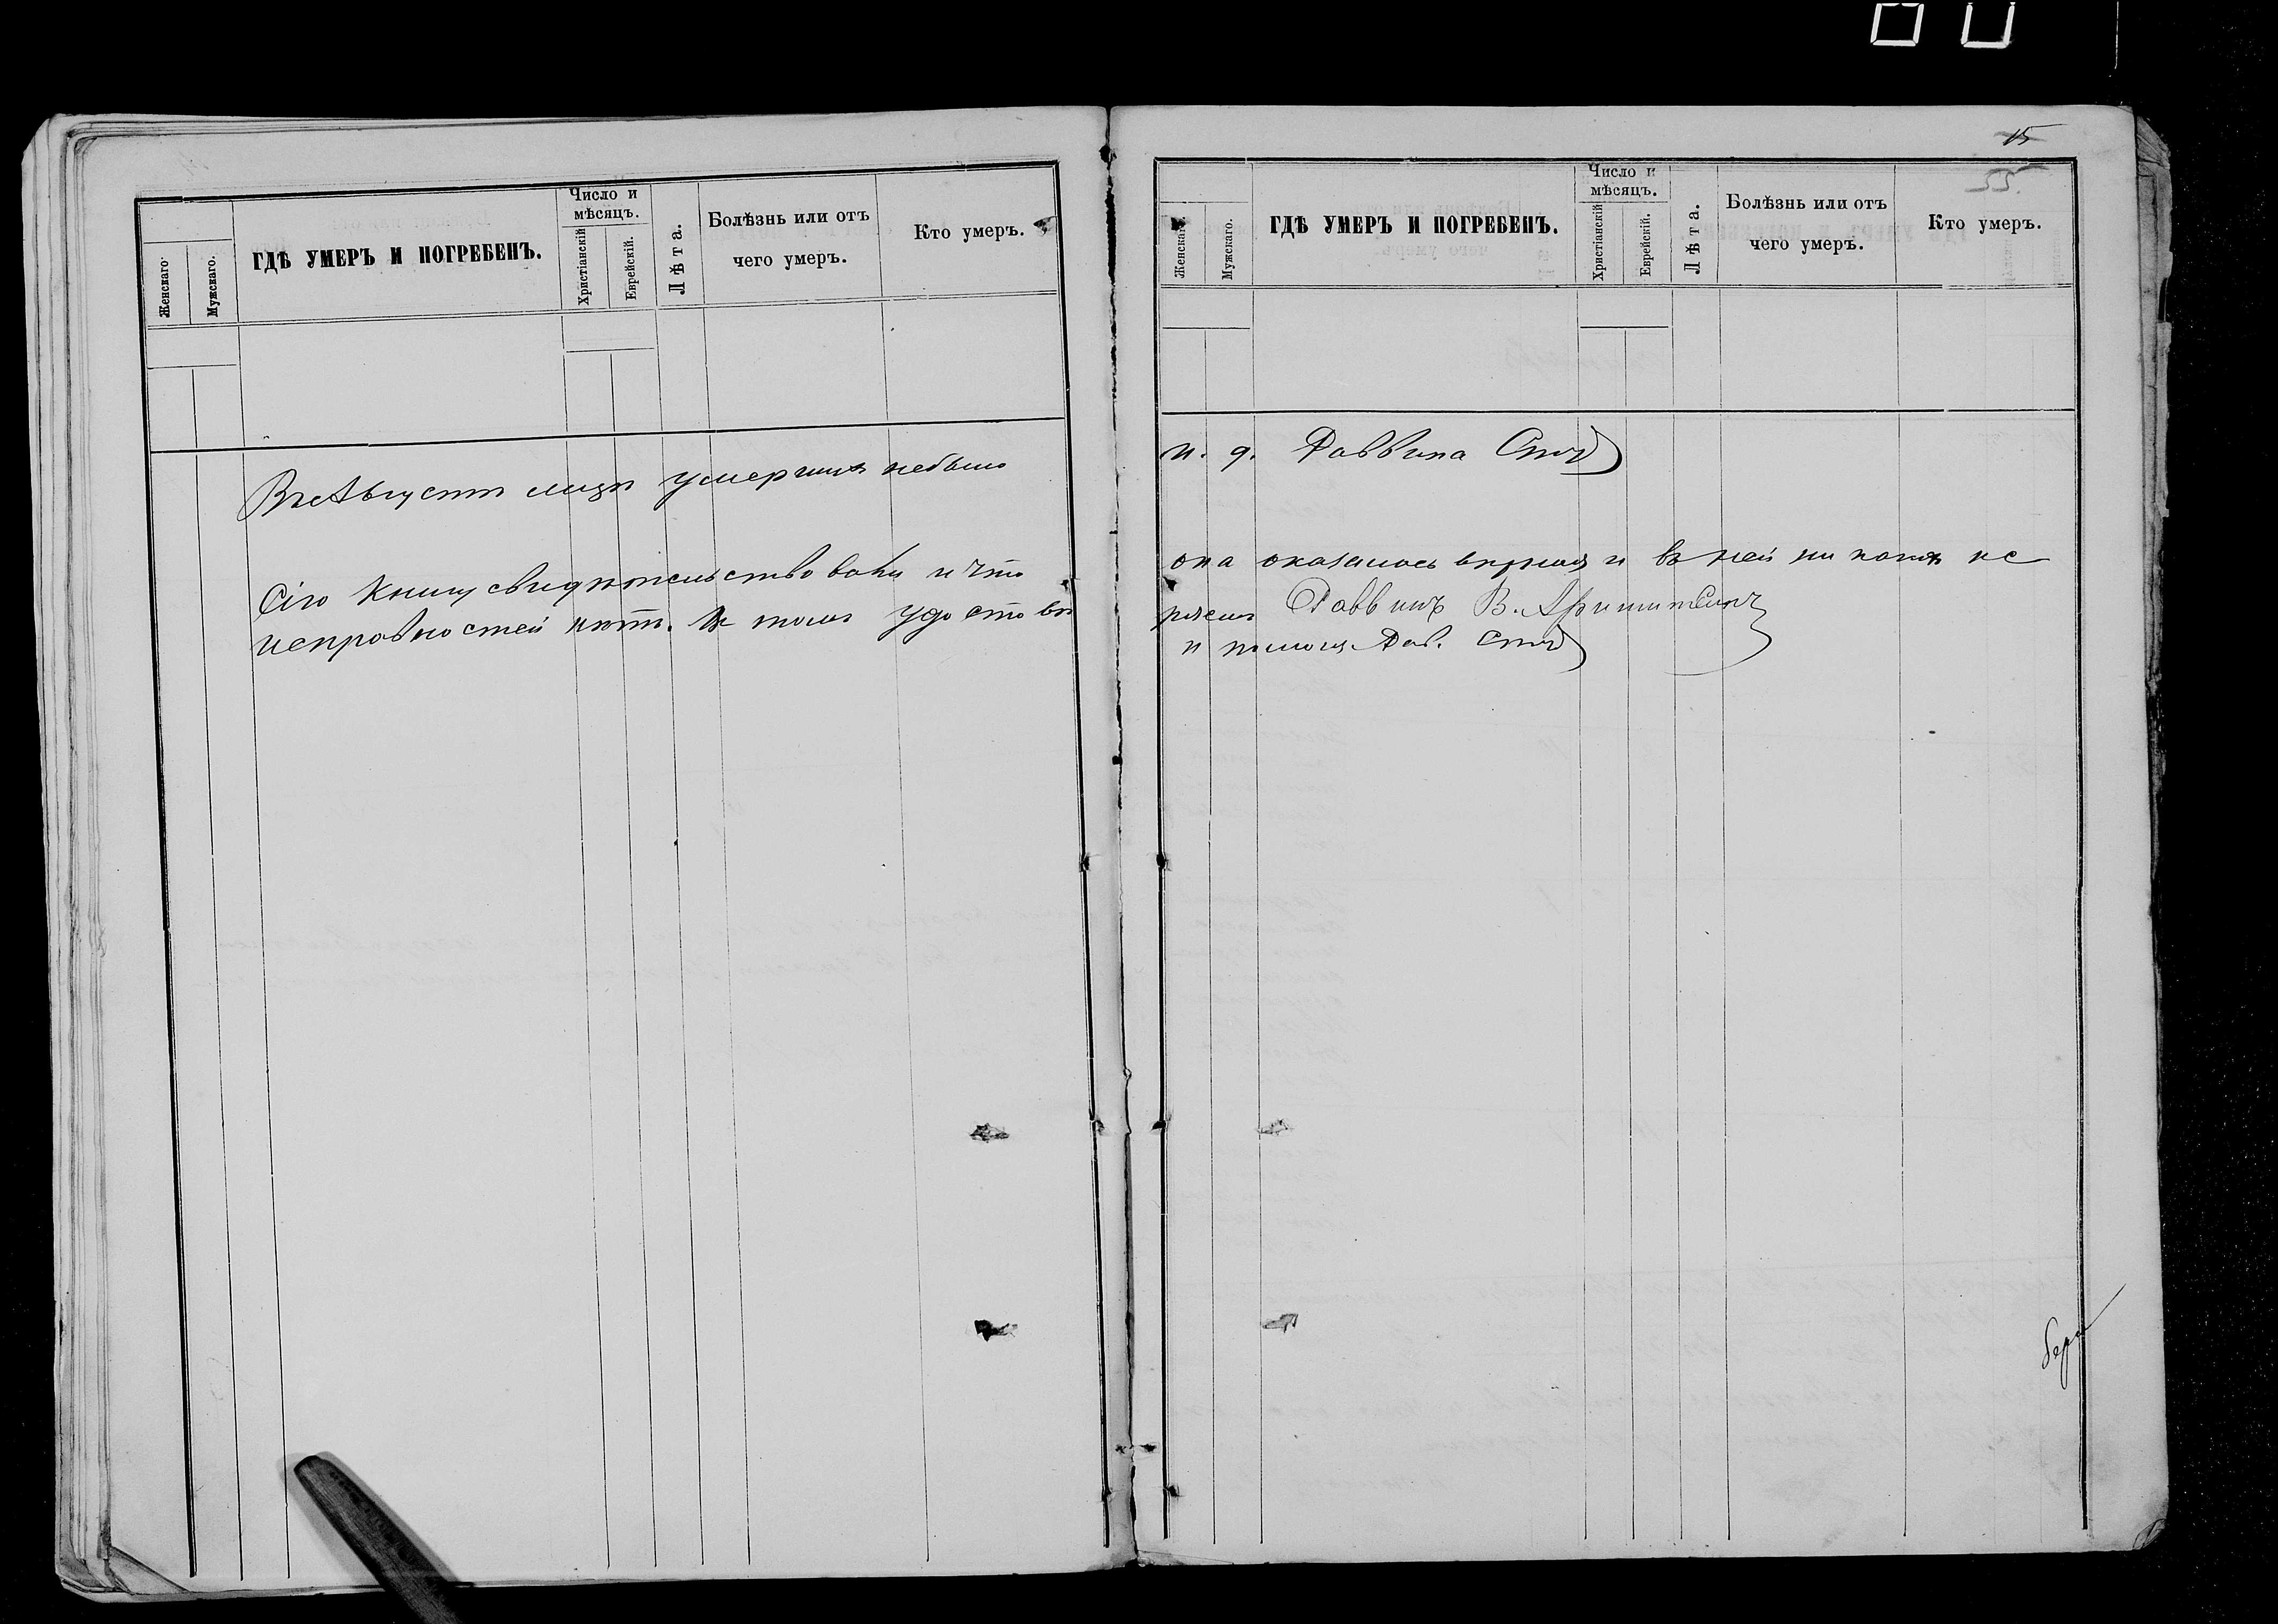 15
55.
Женскаго.
Мужскаго.
ГДѢ УМЕРЪ И ПОГРЕБЕНЪ.
Число и
мѣсяцъ.
Христіанскій
Еврейскій.
Лѣта.
Болѣзнь или отъ
чего умеръ.
Кто умеръ.
Въ Августѣ умершихъ небыло
Сію книгу свидѣтельствовали и что
исправностей нѣтъ. въ томъ удостовѣ
Женскаго.
Мужскаго.
ГДѢ УМЕРЪ И ПОГРЕБЕНЪ.
Число и
мѣсяцъ.
Христіанскій
Еврейскій.
Лѣта.
Болѣзнь или отъ
чего умеръ.
Кто умеръ.
и. д. Раввина
она оказалась вѣрная и въ ней ни какихъ не
ряемъ Раввинъ В.
и Рав.